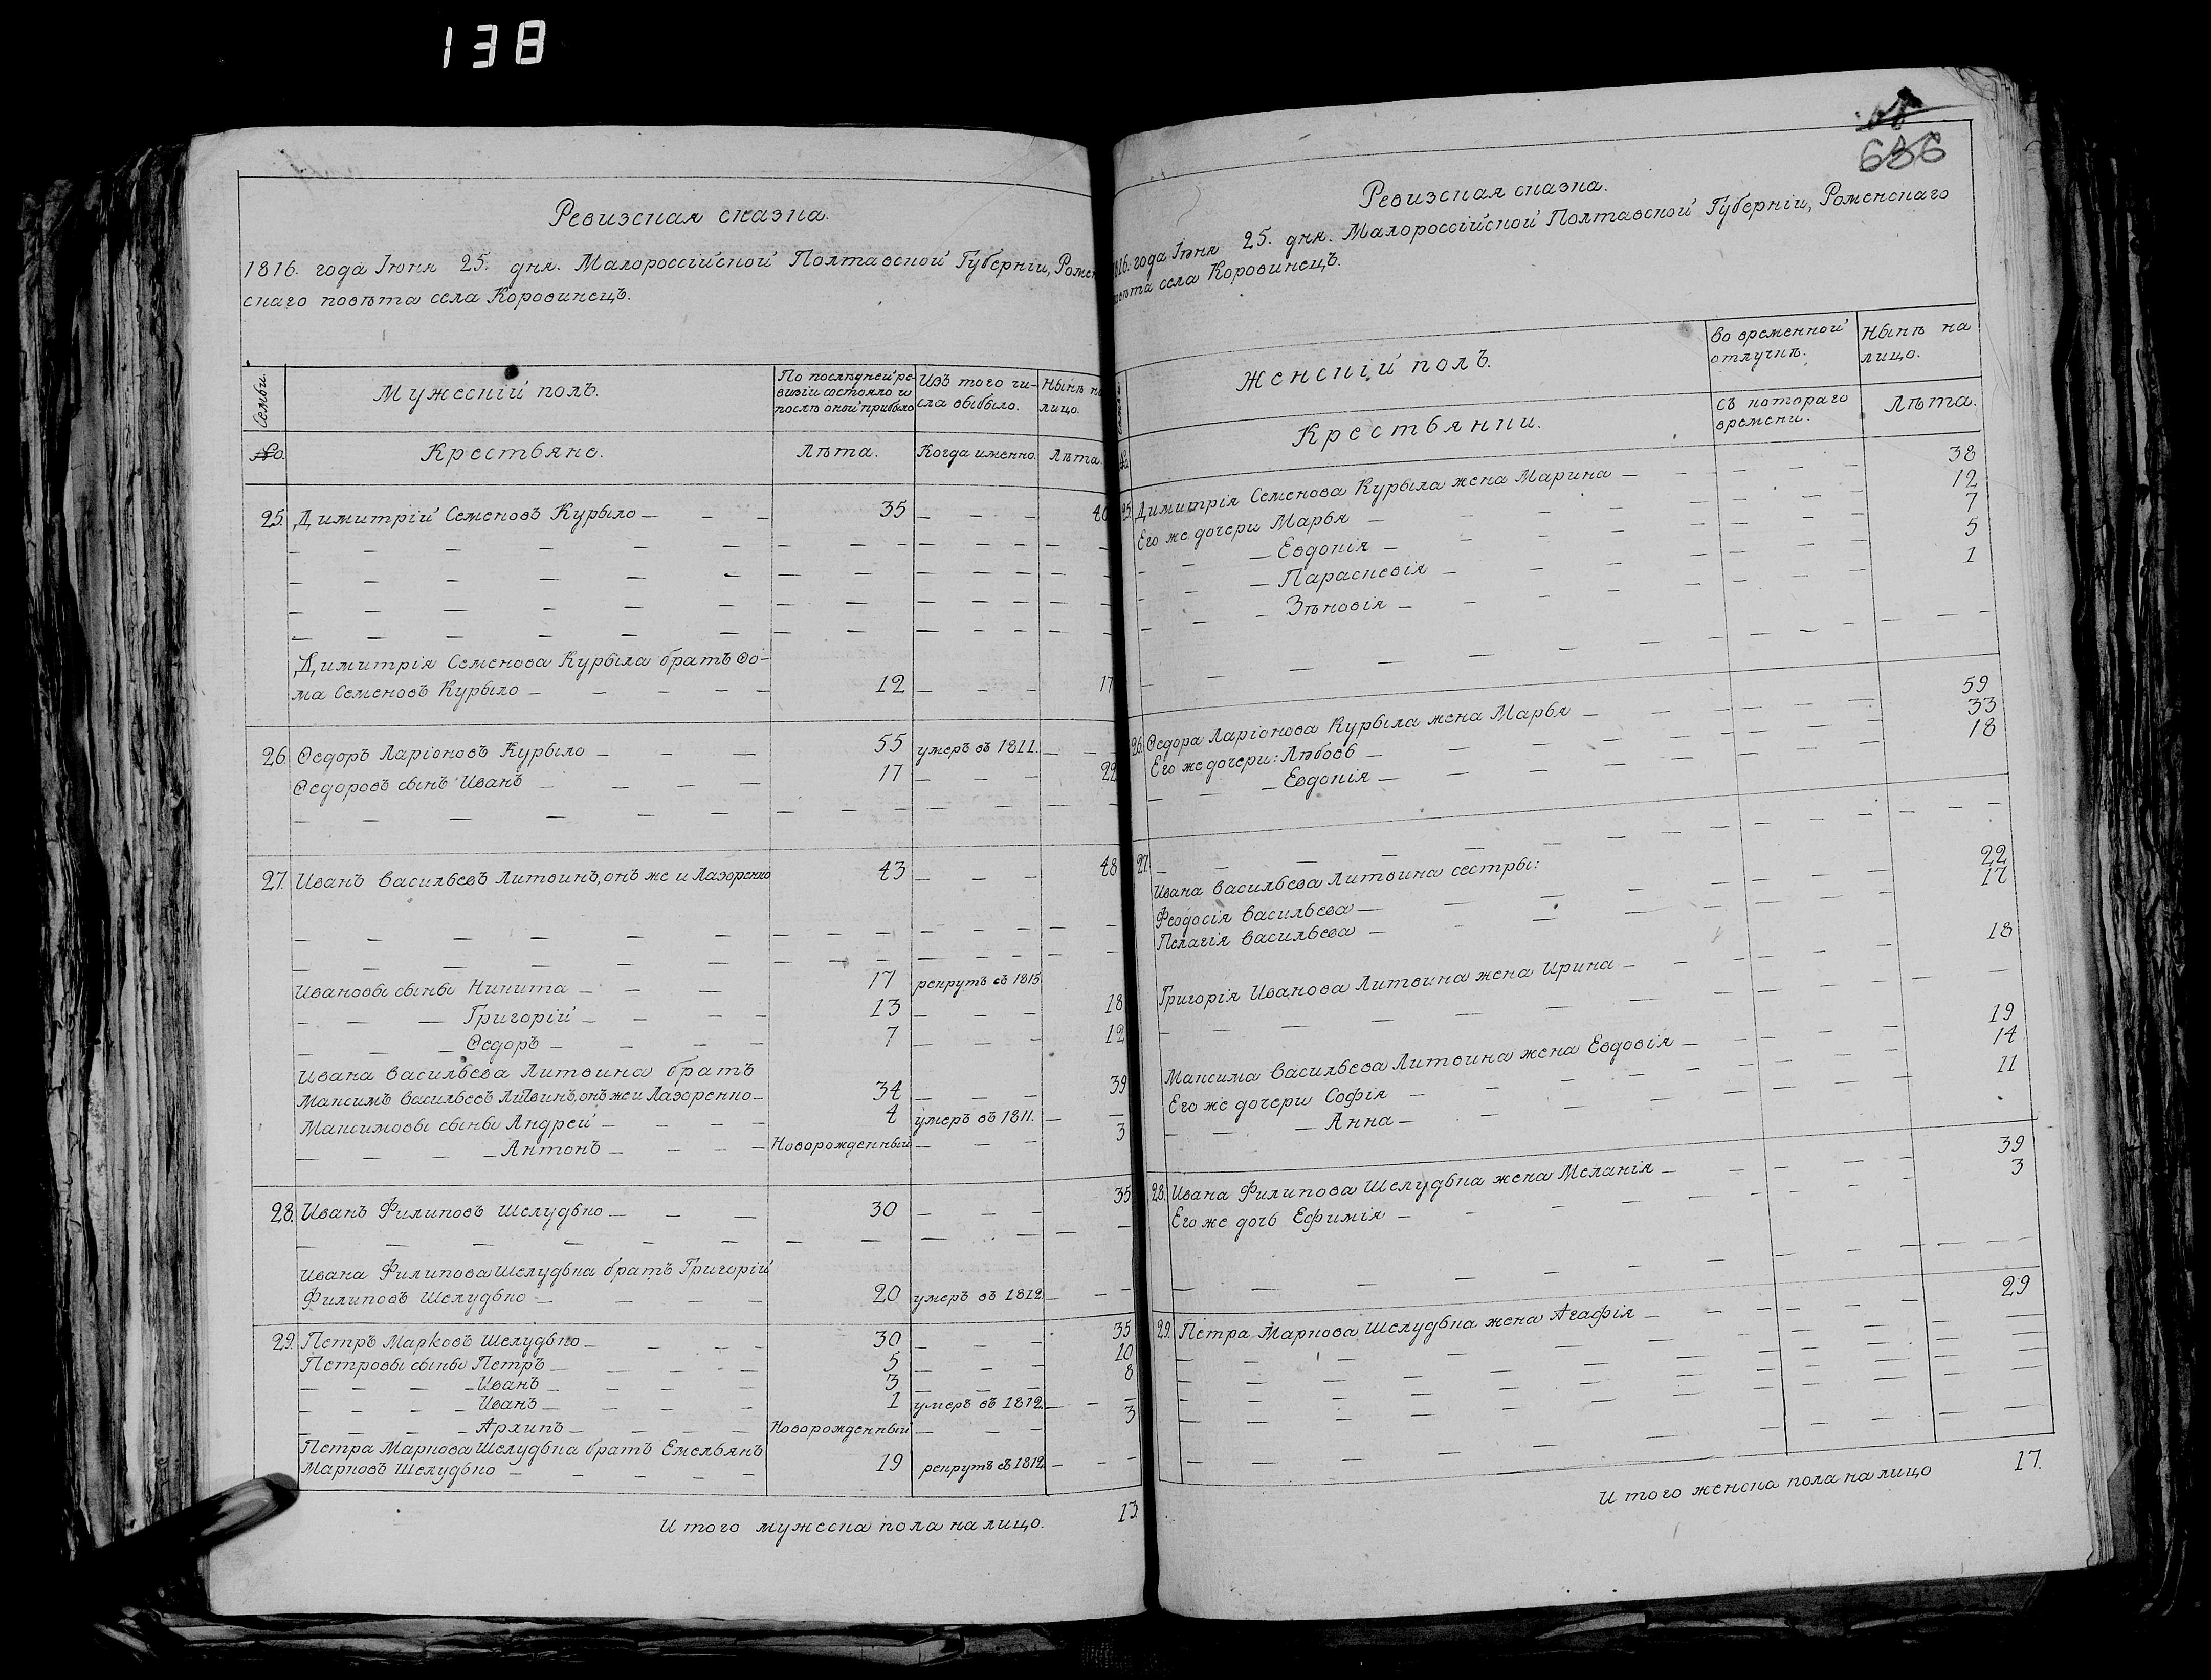 138
Ревизская сказка.
1816. года Іюня 25. дня. Малороссійской Полтавской Губерніи, Ромен
скаго повѣта села Коровинецъ.
Семьи.
Мужескій полъ.
По послѣдней ре-
визіи состояло и
послѣ оной прибыло
Изъ того чи-
сла выбыло.
Нынѣ на
лицо.
№.
Крестьяне.
Лѣта.
Когда именно.
Лѣта.
25. Димитрій Семеновъ Курыло — 35 — 40
Димитрія Семенова Курыла братъ Ѳо-
ма Семеновъ Курыло — 12 — 17
26 Ѳедоръ Ларіоновъ Курыло — 55 умеръ въ 1811. —
Ѳедоровъ сынъ Иванъ — 17 — 22
27. Иванъ Васильевъ Литвинъ, онъ же и Лазоренко 43 — 48
Ивановы сыны Никита — 17 рекрутъ въ 1815
— Григорій — 13 — 18
— Ѳедоръ — 7 — 12
Ивана Васильева Литвина братъ
Максимъ Васильевъ Литвинъ, онъ же и Лазоренко — 34 — 39
Максимовы сыны Андрей — 4 умеръ въ 1811. —
— Антонъ — Новорожденный — 3
28. Иванъ Филиповъ Шелудько — 30 — 35
Ивана Филипова Шелудька братъ Григорій
Филиповъ Шелудько — 20 умеръ въ 1812. —
29. Петръ Марковъ Шелудько — 30 — 35
Петровы сыны Петръ — 5 — 10
— Иванъ — 3 — 8
— Иванъ — 1 умеръ въ 1812. —
— Архипъ — Новорожденный — 3
Петра Маркова Шелудька братъ Емельянъ
Марковъ Шелудько — 19 рекрутъ въ 1812. —
Итого мужеска пола на лицо. 13.
686
Ревизская сказка.
1816. года Іюня 25. дня. Малороссійской Полтавской Губерніи, Роменскаго
повѣта села Коровинецъ.
Женскій полъ.
Во временной
отлучкѣ.
Нынѣ на
лицо.
Крестьянки.
Съ котораго
времени.
Лѣта.
25. Димитрія Семенова Курыла жена Марина — 38
Его же дочери Марья — 12
— Евдокія — 7
— Параскевія — 5
— Зѣновія — 1
26. Ѳедора Ларіонова Курыла жена Марья — 59
Его же дочери: Любовь — 33
— Евдокія — 18
27. —
Ивана Васильева Литвина сестры:
Феодосія Васильева — 22
Пелагія Васильева — 17
Григорія Иванова Литвина жена Ирина — 18
Максима Васильева Литвина жена Евдокія — 19
Его же дочери Софія — 14
— Анна — 11
28. Ивана Филипова Шелудька жена Меланія — 39
Его же дочь Ефимія — 3
29. Петра Маркова Шелудька жена Агафія — 29
Итого женска пола на лицо 17.